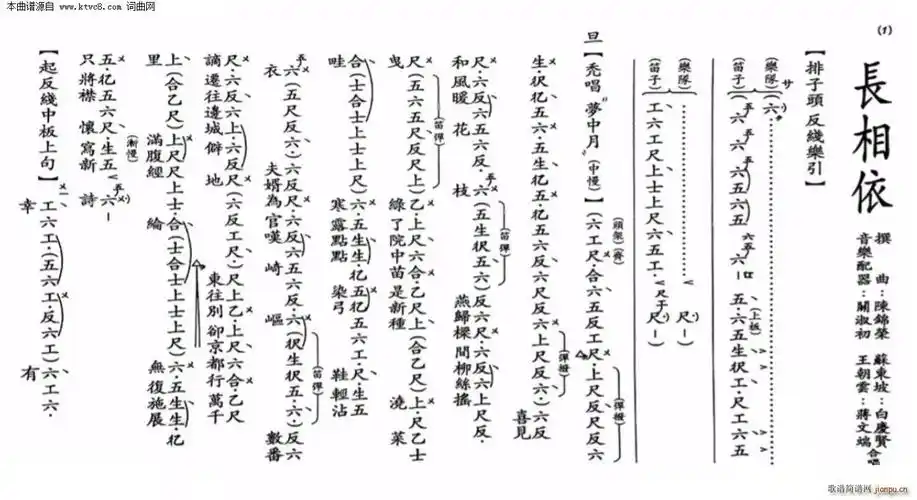 本曲谱源自 www.ktvc8.com 词曲网
(1)
長相依
撰曲:陳錦榮 蘇東坡:白慶賢
音樂配器:關淑初 王朝雲:蔣文端 合唱
【排子頭反綫樂引】
(樂隊) サ 六
(笛子) (六 六 六五六五 六五六 - 廿 五·六五六五生伬工·尺工六五
(上板)
(樂隊) 尺 - )
(笛子) 工六工尺上士上尺六五工 尺 - )
旦【禿唱“夢中月”】(中慢) (六工尺·合六五反工尺·上尺反尺反六
(頭架) (齊) (彈撥)
生·伬亿五六·五生亿五·亿五六反六尺反六上尺反六·) 六反 喜見
(彈撥)
尺·六反六五六反·六 (五生伬五六) 反六尺·六反六上尺反·
和風暖花 枝 燕歸樑間柳絲搖
(笛彈)
尺 (五六五反尺上) 乙·上尺六合·乙尺上 (合乙尺) 上·尺乙士
曳 綠了院中苗是新種 澆菜
(笛彈)
合 (士合士上士上尺) 六·五生生·亿五亿五六工·尺·生五
哇 寒露點點染弓鞋輕沾
六 (五尺反六·) 六反尺·六反六五六反·六 (伬生伬五·六·) 反六
衣 夫婿為官嘆崎 嶇 數番
(笛彈)
尺·六反六上·六反尺 (六反工尺·) 尺上乙·上尺六合·乙尺
謫遷往邊城僻地 東往別卻京都行萬千
上 (合乙尺) 上尺尺上士合 (士合士上士上尺) 六·五生生·亿
里 滿腹經 綸 無復施展
五·亿五六尺·生五 六 -
只將襟懷寫新 詩
(漸慢)
【起反綫中板上句】 工六工·(五六工·反六工) 六工六·
幸 有
歌谱简谱网
jianpu.cn